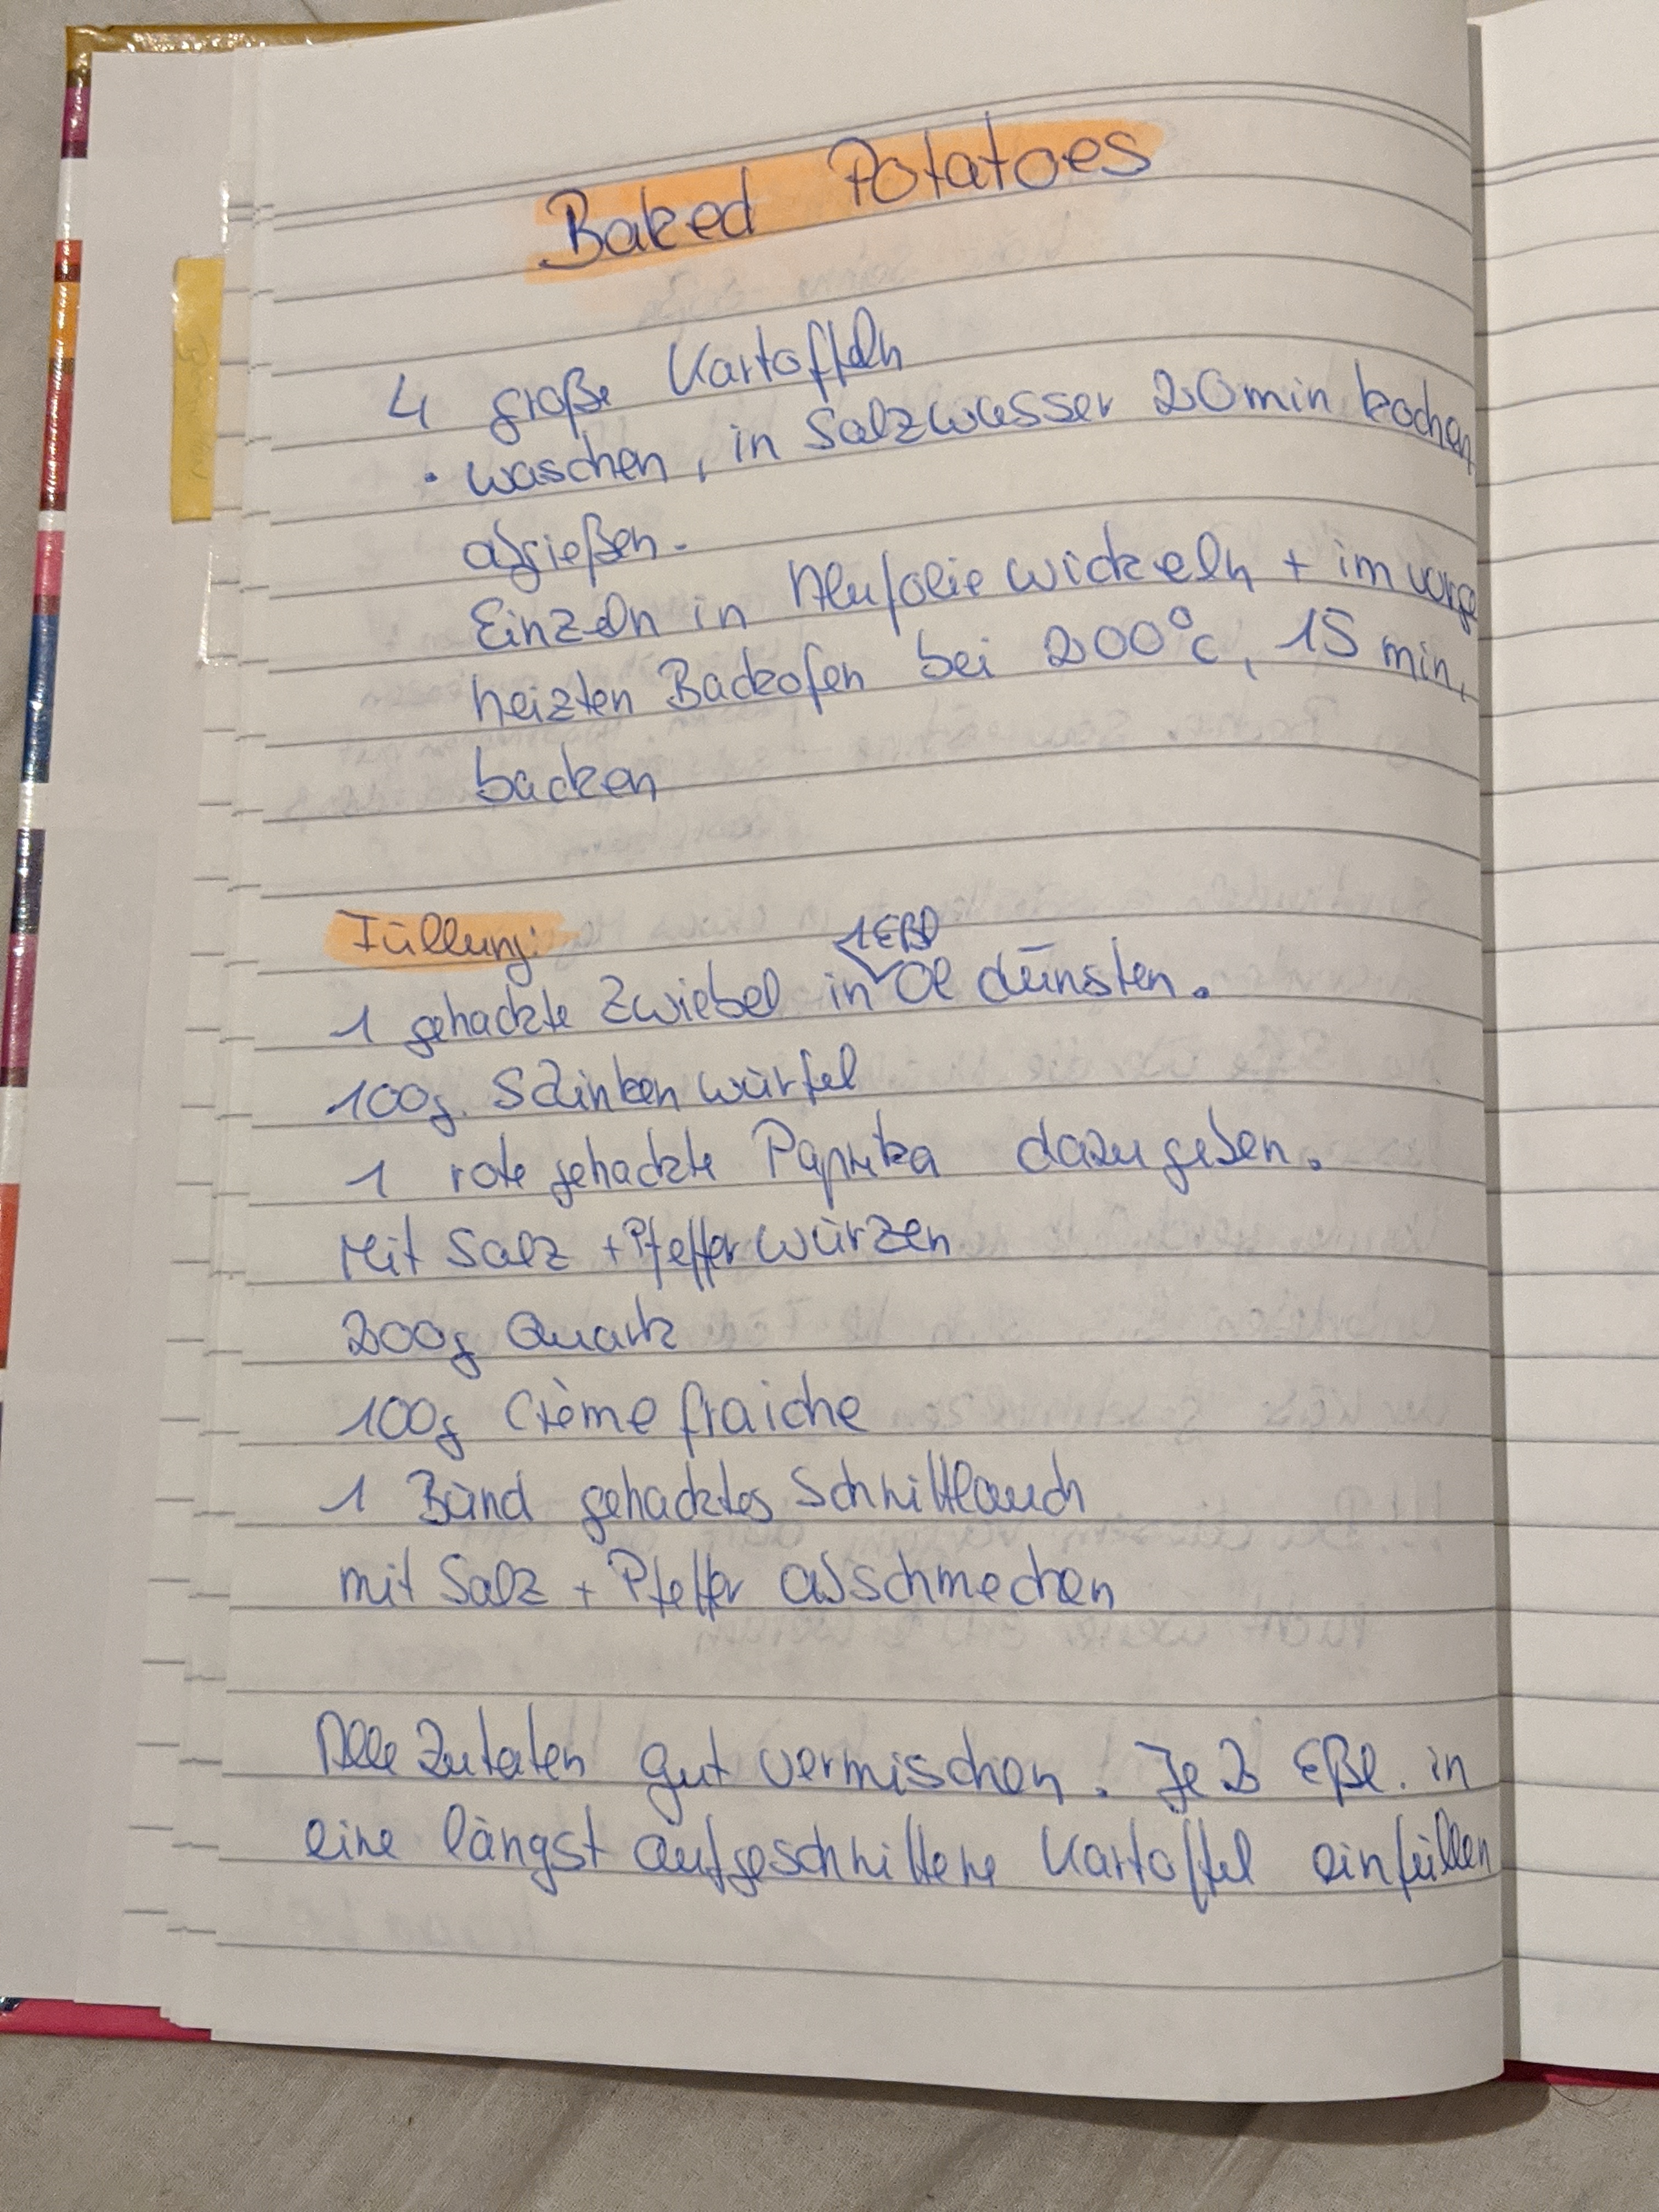 Baked Potatoes
4 große Kartoffeln
· waschen, in Salzwasser 20min kochen
abgießen.
Einzeln in Alufolie wickeln + im vorge
heizten Backofen bei 200°C, 15 min,
backen
Füllung:
1 EßL
1 gehackte Zwiebel in Öl dünsten.
100g. Schinken würfel
1 rote gehackte Paprika dazu geben.
Mit Salz + Pfeffer würzen
200g Quark
100g Crème fraiche
1 Bund gehacktes Schnittlauch
mit Salz + Pfeffer abschmecken
Alle Zutaten gut vermischen. Je 2 Eßl. in
eine längst aufgeschnittene Kartoffel einfüllen